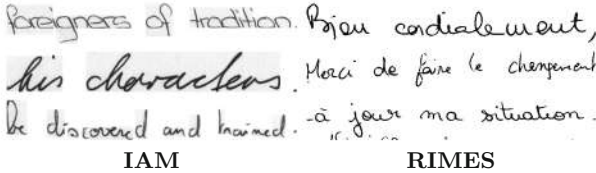 foreigners of tradition.
his characters.
be discovered and trained.
IAM
Bien cordialement,
Merci de faire le changement
à jour ma situation.
RIMES